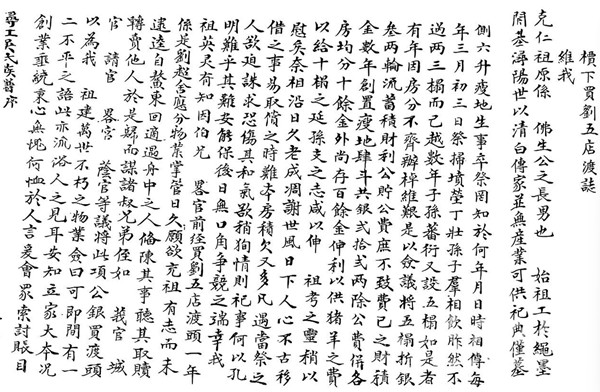 槓下買劉五店渡誌
維我
克仁祖原係 佛生公之長男也 始祖工於繩墨
開基潯陽世以清白傳家並無產業可供祀典僅墓
側六升瘦地生事卒祭罔知於何年月日時相傳每
年三月初三日祭掃墳塋丁壯孫子羣相飲胙然不
過兩三榻而已越數年子孫蕃衍又設五榻如是者
有年因房分不齊辦棹維艱是以僉議將五榻折銀
叁兩輪流蓄積財利公貯公費庶不鼓費已之財積
金數年創置瘦地肆斗共銀弍拾弍兩除公費併各
房均分十餘金外尚存百餘金伸利以供猪羊之費
以給十榻之延孫支之志咸以伸 祖考之靈稍以
慰矣奈相沿日久老成凋謝世風日下人心不古移
借之事易取償之時難本房積欠又多凡遇當祭之
人欲迫誅求恐傷其和氣欲稍狥情則祀事何以孔
明難乎其難安能保後日無口角爭競之端幸我
祖英灵有知因伯兄 畧官前經買劉五店渡頭一年
係是劉超舍應分物業掌管日久願欲充祖有志而未
逮適自鰲東回適過舟中之人偹陳其事聽其取贖
轉賣他人於是歸而謀諸叔兄弟侄如 莪官 城
官 請官 畧官 蔭官等議將此項公銀買渡頭
以為我 祖建萬世不朽之物業僉曰可即間有一
二不平之語此亦流浴人之見耳安知立家大本况
創業垂統秉心無愧何恤於人言爰會眾索討賬目
尋工吳氏族普序